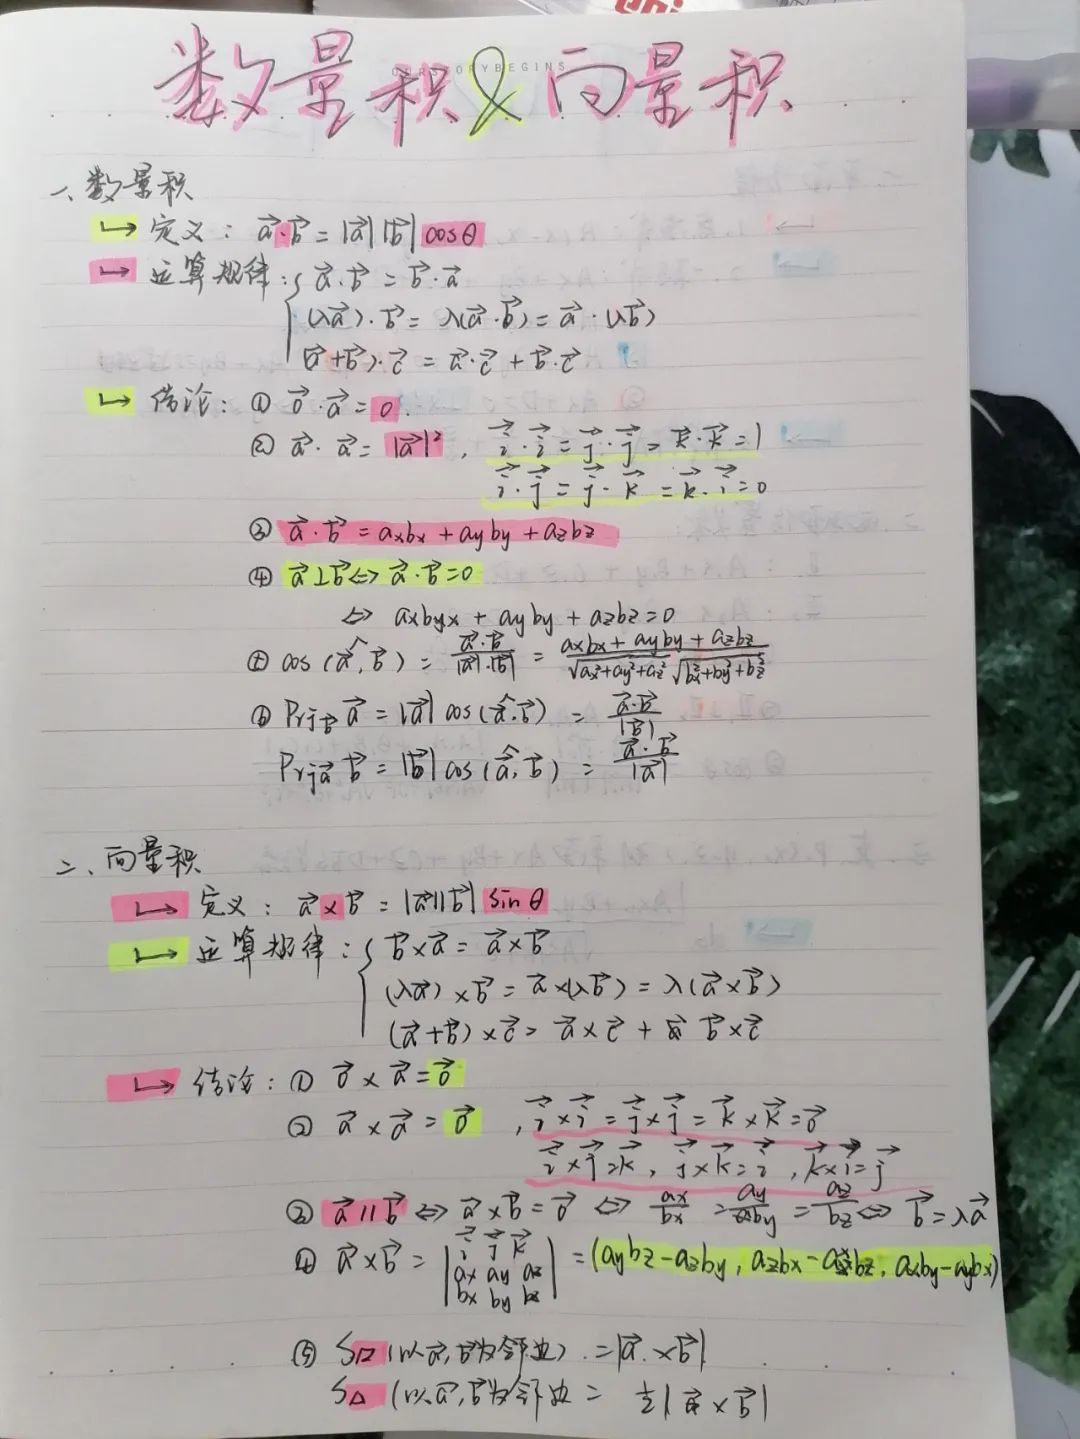 数量积&向量积
OURSTORYBEGINS
一、数量积
↳ 定义: a⃗·b⃗ = |a⃗||b⃗|cosθ
↳ 运算规律: { a⃗·b⃗ = b⃗·a⃗
(λa⃗)·b⃗ = λ(a⃗·b⃗) = a⃗·(λb⃗)
(a⃗+b⃗)·c⃗ = a⃗·c⃗ + b⃗·c⃗
↳ 结论: ① 0⃗·a⃗ = 0.
② a⃗·a⃗ = |a⃗|², i⃗·i⃗ = j⃗·j⃗ = k⃗·k⃗ = 1
i⃗·j⃗ = j⃗·k⃗ = k⃗·i⃗ = 0
③ a⃗·b⃗ = axbx + ayby + azbz
④ a⃗⊥b⃗ ⇔ a⃗·b⃗ = 0
⇔ axbyx + ayby + azbz = 0
⑤ cos(a⃗,^b⃗) = a⃗·b⃗/|a⃗|·|b⃗| = axbx + ayby + azbz/√ax²+ay²+az² √bx²+by²+bz²
⑥ Prjb⃗ a⃗ = |a⃗|cos(a⃗,^b⃗) = a⃗·b⃗/|b⃗|
Prja⃗ b⃗ = |b⃗|cos(a⃗,^b⃗) = a⃗·b⃗/|a⃗|
二、向量积
↳ 定义: a⃗×b⃗ = |a⃗||b⃗|sinθ
↳ 运算规律: { b⃗×a⃗ = a⃗×b⃗
(λa⃗)×b⃗ = a⃗×(λb⃗) = λ(a⃗×b⃗)
(a⃗+b⃗)×c⃗ = a⃗×c⃗ + b⃗×c⃗
↳ 结论: ① 0⃗×a⃗ = 0⃗
② a⃗×a⃗ = 0⃗, i⃗×i⃗ = j⃗×j⃗ = k⃗×k⃗ = 0⃗
i⃗×j⃗ = k⃗, j⃗×k⃗ = i⃗, k⃗×i⃗ = j⃗
③ a⃗∥b⃗ ⇔ a⃗×b⃗ = 0⃗ ⇔ ax/bx = ay/by = az/bz ⇔ b⃗ = λa⃗
④ a⃗×b⃗ = |i⃗ j⃗ k⃗
ax ay az
bx by bz| = (aybz-azby, azbx-axbz, axby-aybx)
⑤ S▱(以a⃗,b⃗为邻边) = |a⃗×b⃗|
S△(以a⃗,b⃗为邻边 = ½|a⃗×b⃗|